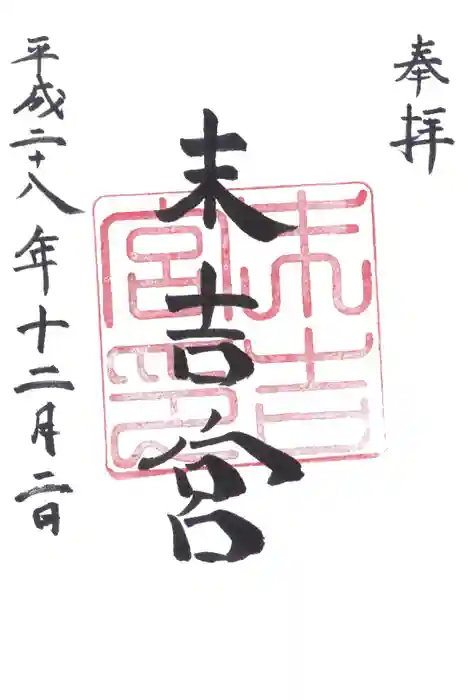 奉拝
末吉宮
末吉宮印
平成二十八年十二月二日